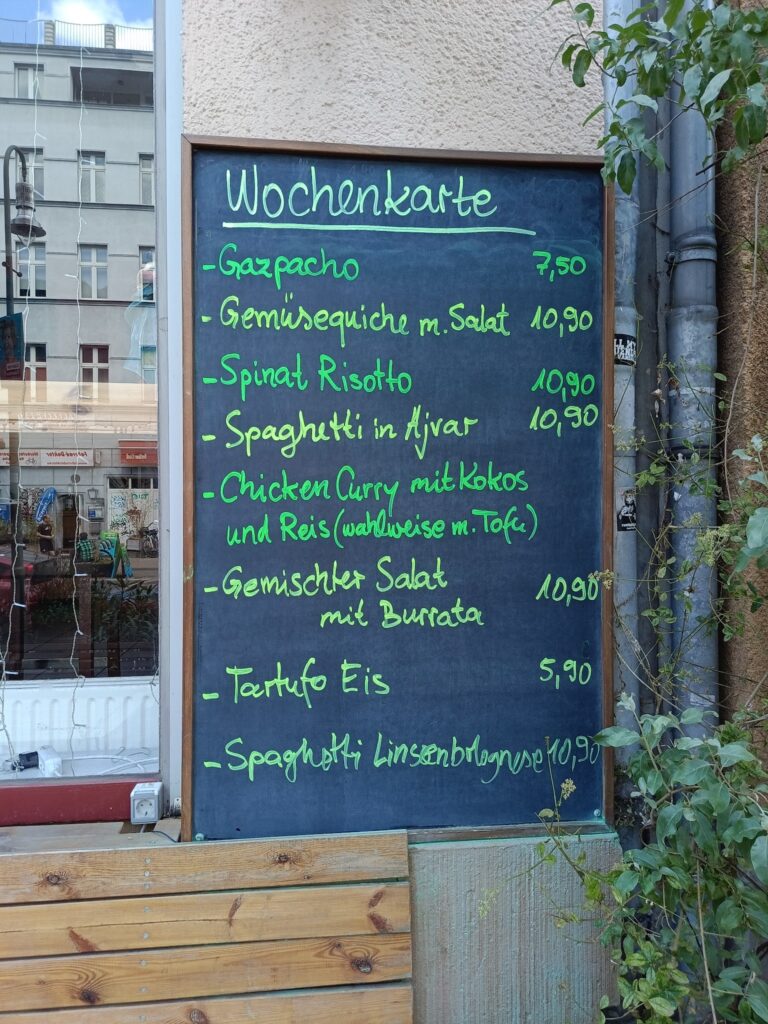 Wochenkarte
- Gazpacho 7,50
- Gemüsequiche m. Salat 10,90
- Spinat Risotto 10,90
- Spaghetti in Ajvar 10,90
- Chicken Curry mit Kokos
und Reis (wahlweise m. Tofu)
- Gemischter Salat 10,90
mit Burrata
- Tartufo Eis 5,90
- Spaghetti Linsenbolognese 10,90